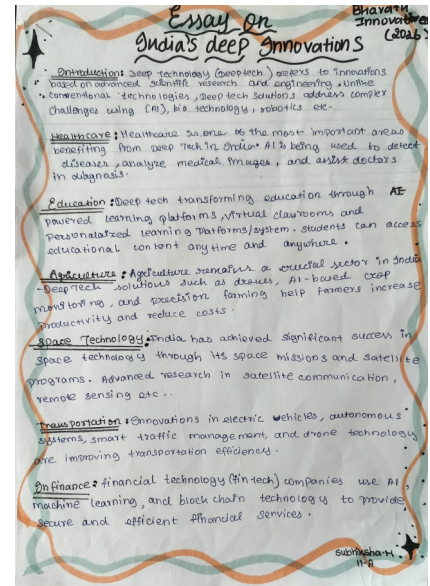 Essay on
India's deep Innovations
Bharath
Innovatives
(2026)
Introduction: Deep technology (Deeptech) refers to innovations
based on advanced scientific research and engineering. Unlike
conventional technologies, Deeptech solutions address complex
challenges using (AI), bio technology, robotics etc-
Healthcare: Healthcare is one of the most important areas
benefiting from Deep Tech in India. AI is being used to detect
diseases, analyze medical images, and assist doctors
in diagnosis.
Education: Deep tech transforming education through AI
powered learning platforms, virtual classrooms and
personalaized learning platforms/system. students can access
educational content anytime and anywhere.
Agriculture: Agriculture remains a crucial sector in India
-DeepTech solutions such as drones, AI-based crop
monitoring, and precision farming help farmers increase
productivity and reduce costs.
Space Technology: India has achieved significant success in
space technology through its space missions and satellite
programs. Advanced research in satellite communication,
remote sensing etc..
Transportation: Innovations in electric vehicles, autonomous
systems, smart traffic management, and drone technology
are improving transportation efficiency.
Infinance: financial technology (fin tech) companies use AI,
machine learning, and block chain technology to provide
secure and efficient financial services.
Subhiksha-M
11-A